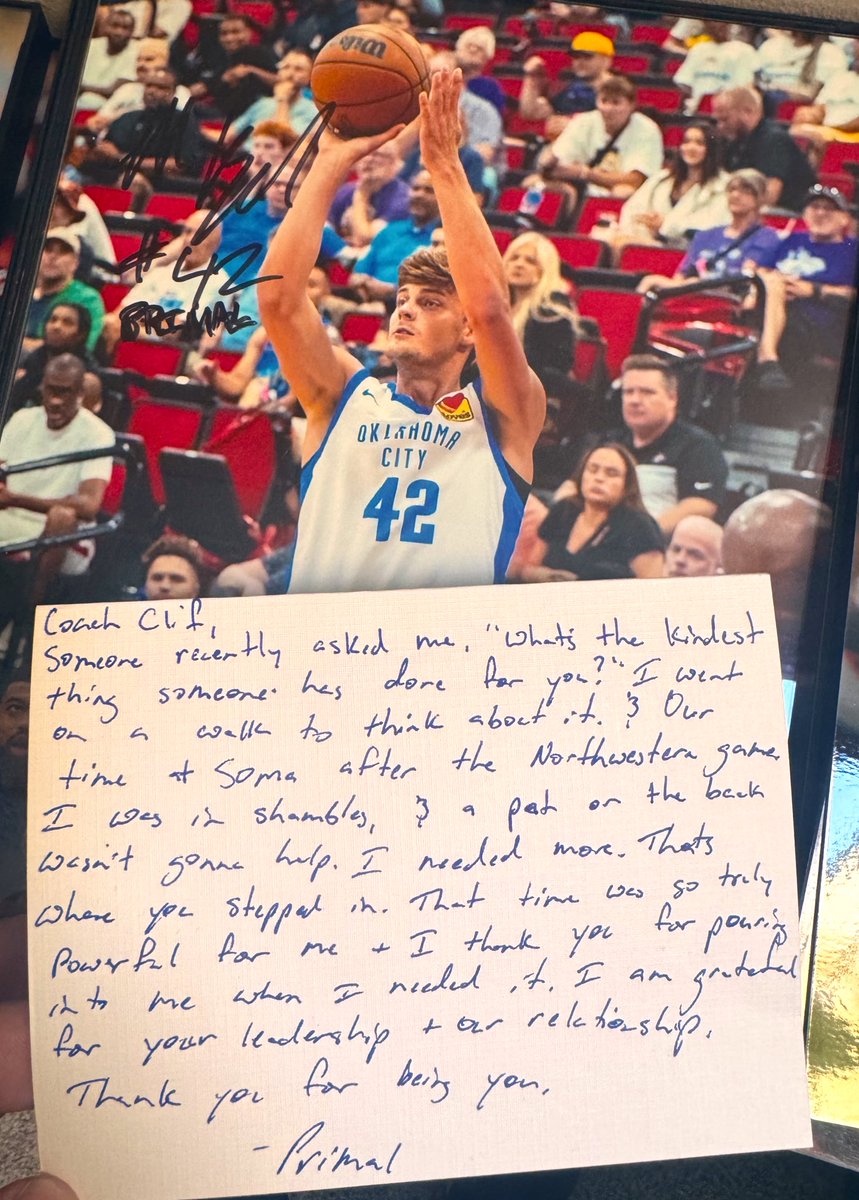 Wilson
#42
PRIMAL
LOVE'S
OKLAHOMA
CITY
42
Coach Clif,
Someone recently asked me, "Whats the kindest
thing someone has done for you?" I went
on a walk to think about it. & Our
time at Soma after the Northwestern game.
I was in shambles, & a pat on the back
wasn't gonna help. I needed more. Thats
where you stepped in. That time was so truly
powerful for me + I thank you for pouring
into me when I needed it. I am grateful
for your leadership + our relationship.
Thank you for being you.
- Primal